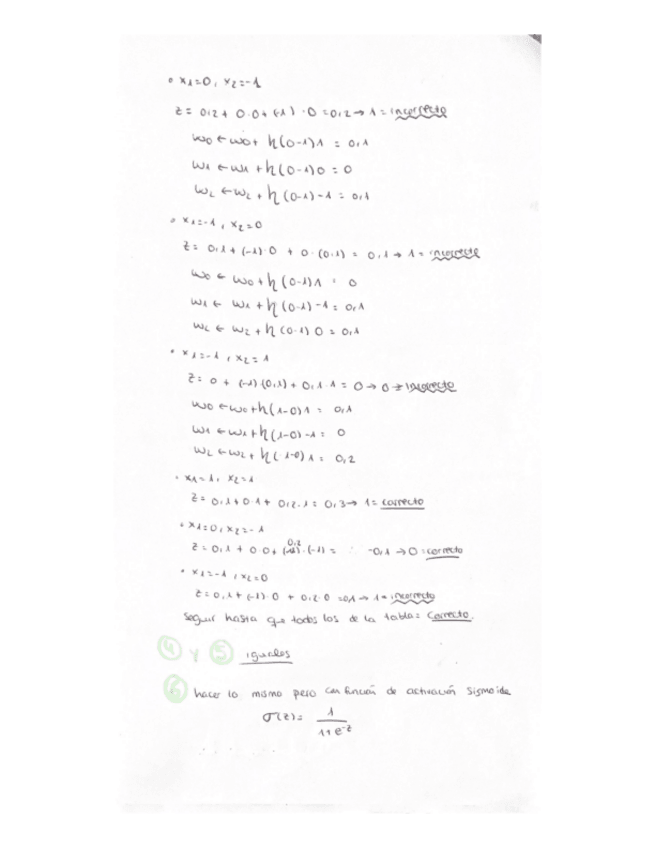 • x1=0, x2=-1
z = 0,2 + 0·0 + (-1)·0 = 0,2 → 1 = incorrecto
w0 ← w0 + η(0-1)1 = 0,1
w1 ← w1 + η(0-1)0 = 0
w2 ← w2 + η(0-1)-1 = 0,1
• x1=-1, x2=0
z = 0,1 + (-1)·0 + 0·(0,1) = 0,1 → 1 = incorrecto
w0 ← w0 + η(0-1)1 = 0
w1 ← w1 + η(0-1)-1 = 0,1
w2 ← w2 + η(0-1)0 = 0,1
• x1=-1, x2=1
z = 0 + (-1)(0,1) + 0,1·1 = 0 → 0 = incorrecto
w0 ← w0 + η(1-0)1 = 0,1
w1 ← w1 + η(1-0)-1 = 0
w2 ← w2 + η(1-0)1 = 0,2
• x1=1, x2=1
z = 0,1 + 0·1 + 0,2·1 = 0,3 → 1 = correcto
• x1=0, x2=-1
z = 0,1 + 0·0 + 0,2·(-1) = -0,1 → 0 = correcto
• x1=-1, x2=0
z = 0,1 + (-1)·0 + 0,2·0 = 0,1 → 1 = incorrecto
seguir hasta que todos los de la tabla = correcto.
4 y 5 iguales
6 hacer lo mismo pero con función de activación sigmoide
σ(z) = 1 / 1+e^-z